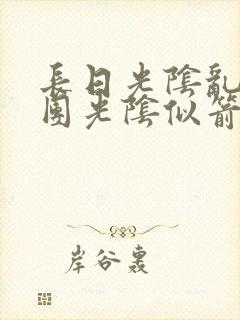 長日光陰亂
團光陰似箭
岸谷轟